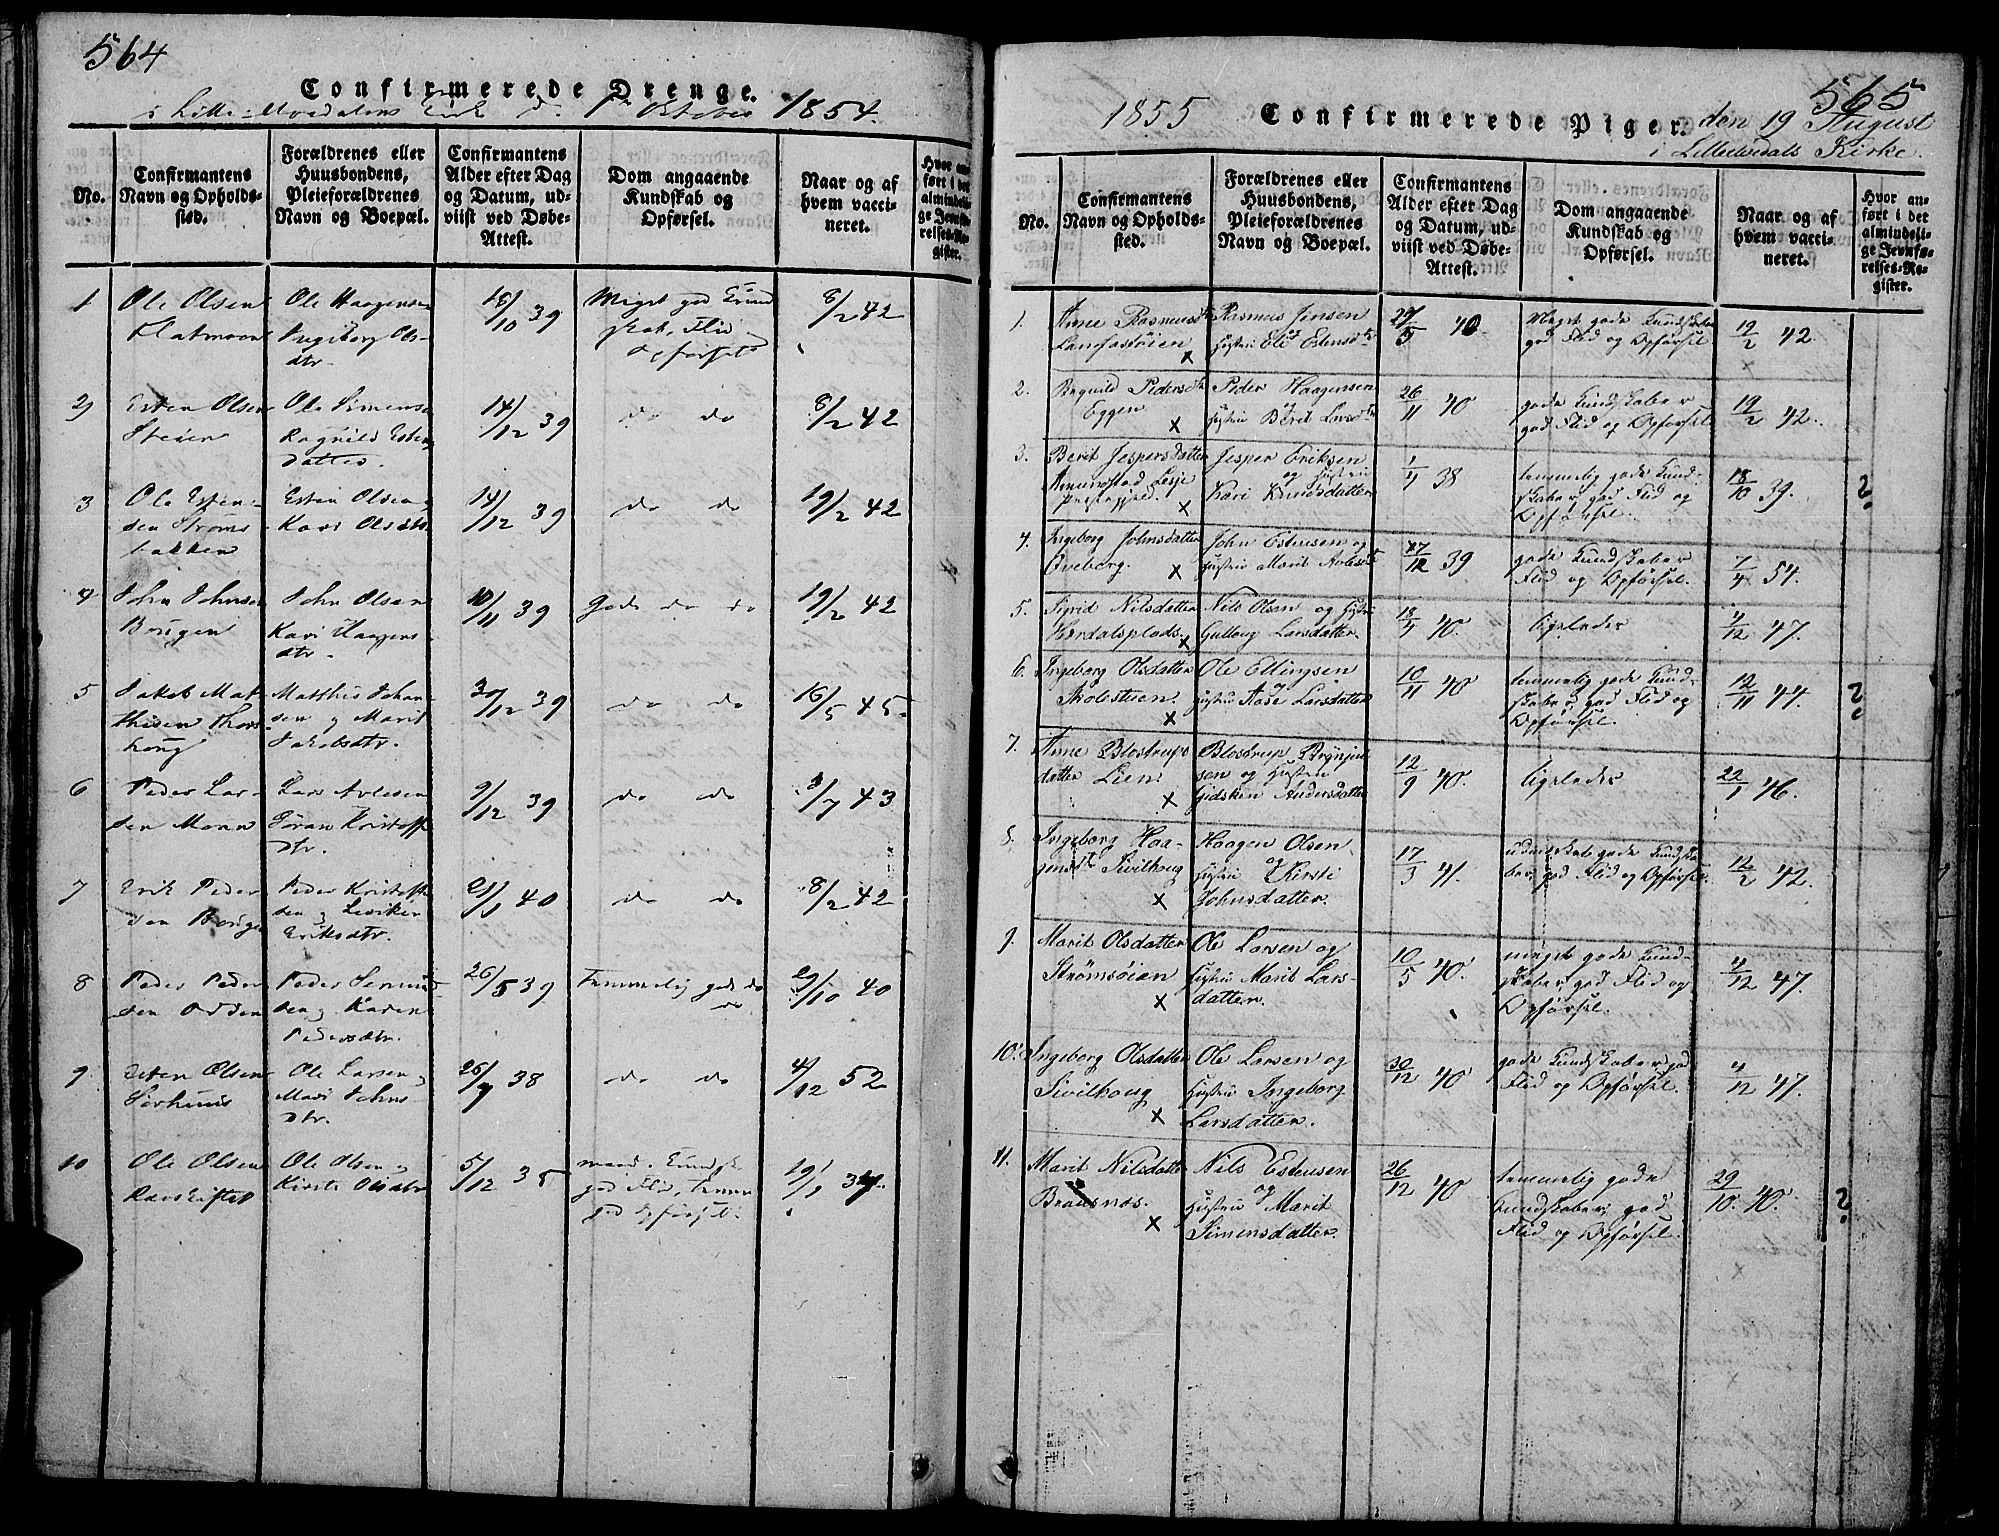 564
Confirmerede Drenge.
i Lille Elvedalens Kirke d. 1 October 1854
No.
Confirmantens
Navn og Opholds-
sted.
Forældrenes eller
Huusbondens,
Pleieforældrenes
Navn og Boepæl.
Confirmantens
Alder efter Dag
og Datum, ud-
viist ved Døbe-
Attest.
Dom angaaende
Kundskab og
Opførsel.
Naar og af
hvem vacci-
neret.
Hvor an-
ført i det
almindeli-
ge Jevnfø-
relses-Re-
gister.
1
Ole Olsen
Flatmoen
Ole Haagensen
Ingeborg Ols-
dtr.
18/10 39
Meget god Kund
skab, Flid
Opførsel
8/2 42
2)
Esten Olsen
Steien
Ole Simensen
Ragnild Esten
datter.
14/12 39
do do
8/2 42
3
Ole Esten-
sen Strøms
bakken
Esten Olsen
Kari Olsdtr
14/12 39
do do
19/2 42
4
John Johnsen
Borgen
John Olsen
Kari Haagens-
dtr.
10/11 39
Gode do do
19/2 42
5
Jakob Mat
thisen Thors
houg
Matthis Johan-
sen og Marit
Jakobsdtr.
30/12 39
do do
16/5 45.
6
Peder Lar-
sen Moen
Lars Avlesen
Gøran Kristoff
dtr.
9/12 39
do do
3/7 43
7
Erik Peder
sen Borgen
Peder Kristoff
sen og
Eriksdtr.
21/1 40
do do
8/2 42
8
Peder Peder
sen Odden
Peder Simen
sen og Karen
Pedersdtr.
26/5 39
Temmelig gode do
do
29/10 40
9
Esten Olsen
Sørhuus
Ole Larsen
Mari Johns
dtr.
26/9 38
do do
4/12 52
10
Ole Olsen
Ole Olsen og
Kirste Olsdtr
5/12 38
maad. Kundsk.
god Flid, temme
god Opførsel.
19/1
565
1855 Confirmerede Piger. den 19 August
i Lilleelvedals Kirke.
No.
Confirmantens
Navn og Opholds-
sted.
Forældrenes eller
Huusbondens,
Pleieforældrenes
Navn og Boepæl.
Confirmantens
Alder efter Dag
og Datum, ud-
viist ved Døbe-
Attest.
Dom angaaende
Kundskab og
Opførsel.
Naar og af
hvem vacci-
neret.
Hvor an-
ført i det
almindeli-
ge Jevnfø-
relses-Re-
gister.
1.
Anne Rasmusdtr
x
Rasmus Jensen
og
Hustru Eli Estensdtr
29/5 40
Meget gode Kundskaber
god Flid og Opførsel
19/2 42.
2.
Ragnild Pedersdtr
Eggen
x
Peder Haagensen
og
Hustru Berit Larsdtr
26/11 40
gode Kundskaber
god Flid og Opførsel
19/2 42.
3.
Berit Jespersdatter
Amundstad Lesje
Præstegjeld.
x
Jesper Eriksen
og Hustru
Kari Knudsdatter
1/4 38
temmelig gode Kund-
skaber, god Flid og
Opførsel.
18/10 39.
?
4.
Ingeborg Johnsdatter
Oveborg.
x
John Estensen og
Hustru Marit Avlesdtr
27/12 39
gode Kundskaber
Flid og Opførsel.
7/4 54.
5.
Sigrid Nilsdatter
Hordalsplads.
x
Nils Olsen og Hustru
Gullaug Larsdatter.
18/4 40.
ligeledes
4/12 47.
6.
Ingeborg Olsdatter
x
Ole Ellingsen
og
Hustru Aase Larsdatter
10/11 40
temmelig gode Kund-
skaber, god Flid og
Opførsel.
12/11 44.
?
7.
Anne Blostrups
datter Lien.
x
Blostrup Brynjul
sen og Hustru
Gidsken Andersdatter
12/9 40.
ligeledes
22/1 46.
8.
Ingeborg Haa-
gensdtr Sivilhoug
x
Haagen Olsen
og
Hustru Kirste
Johnsdatter.
17/3 41.
udmærket gode Kundska-
ber, god Flid og Opførsel.
12/2 42.
9.
Marit Olsdatter
Strømsøien
x
Ole Larsen og
Hustru Marit Lars-
datter.
10/5 40.
meget gode Kund-
skaber, god Flid og
Opførsel.
4/12 47.
10.
Ingeborg Olsdatter
Sivilhoug
x
Ole Larsen og
Hustru Ingeborg
Larsdatter.
30/12 40
gode Kundskaber, god
Flid og Opførsel.
4/12 47.
11.
Marit Nilsdatter
Brænsnæs.
x
Nils Estensen
og
Hustru Marit
Simensdatter.
26/12 40
temmelig gode
Kundskaber, god
Flid og Opførsel.
29/10. 40.
?